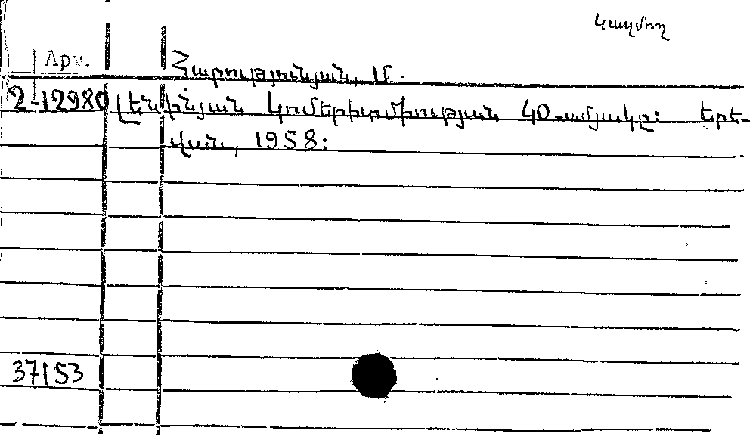 կազմող
Արվ.
Հարությունյան, Մ.
2-12980 Լենինյան կոմերիտմիության 40-ամյակը: Երե-
վան, 1958:
37153